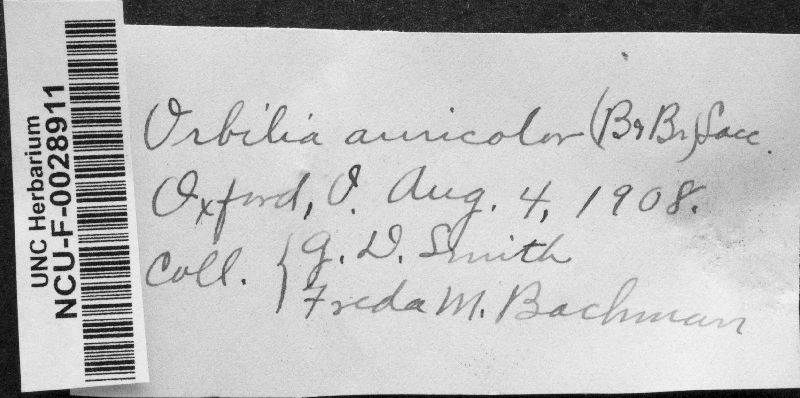 UNC Herbarium
NCU-F-0028911
Orbilia auricolor (Br Br) Sacc.
Oxford, O. Aug. 4, 1908.
Coll. { G. D. Smith
Freda M. Bachman